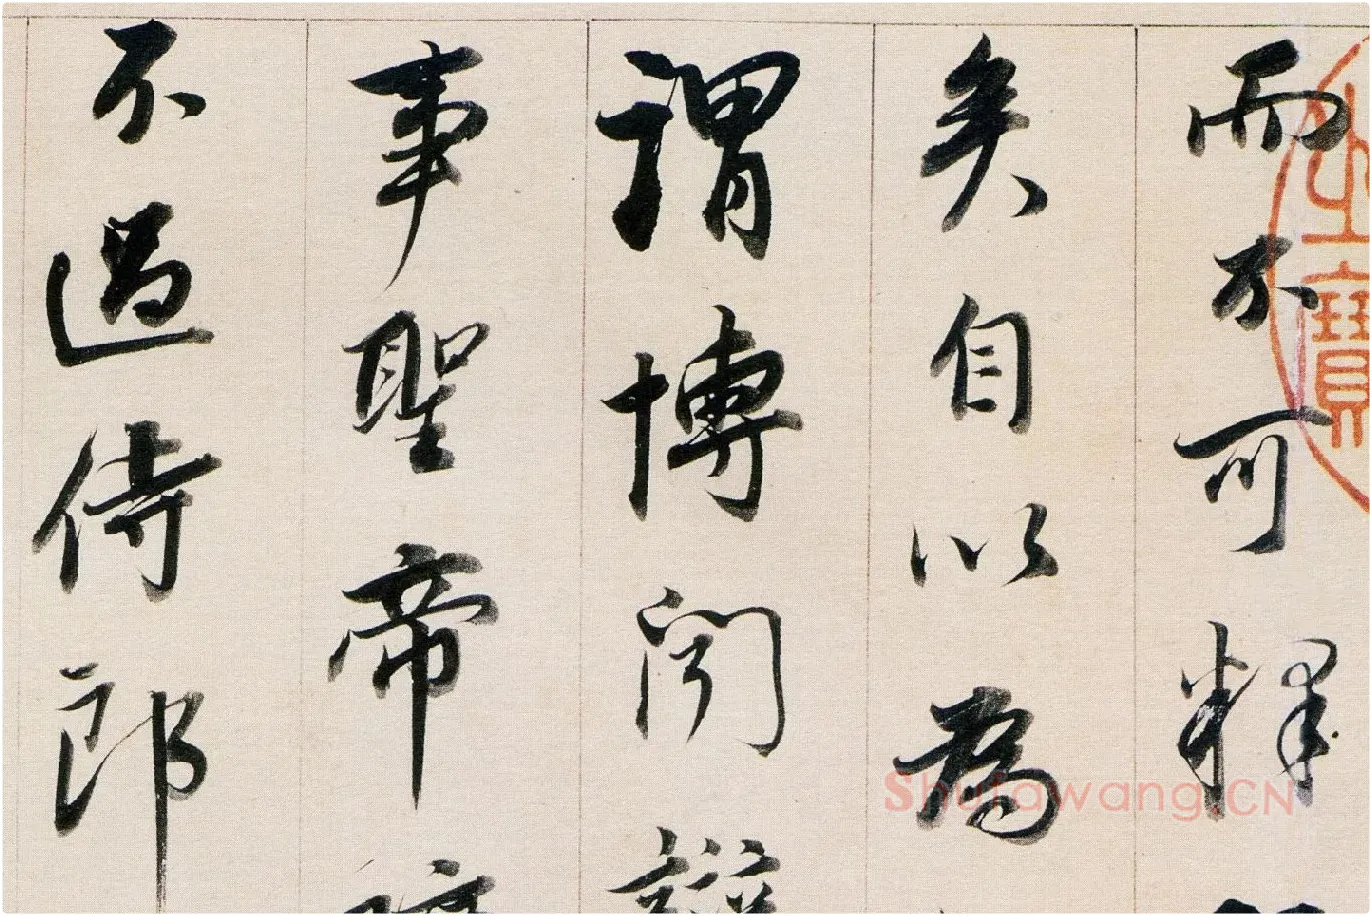 而不可釋
矣自以為
謂博聞
事聖帝
不過侍郎
寶
Shufawang.CN